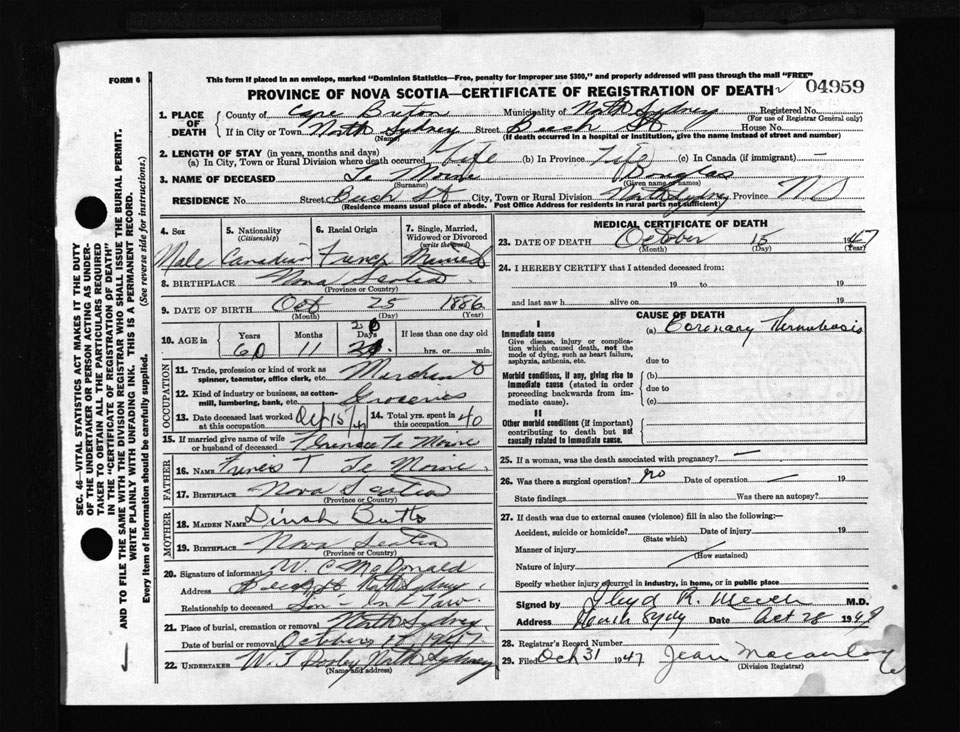 FORM 6
This form if placed in an envelope, marked "Dominion Statistics—Free, penalty for improper use $300," and properly addressed will pass through the mail "FREE"
PROVINCE OF NOVA SCOTIA—CERTIFICATE OF REGISTRATION OF DEATH 04959
1. PLACE OF DEATH County of Cape Breton Municipality of North Sydney Registered No.
(For use of Registrar General only)
If in City or Town North Sydney Street St House No.
(Name) (If death occurred in a hospital or institution, give the name instead of street and number)
2. LENGTH OF STAY (in years, months and days)
(a) In City, Town or Rural Division where death occurred Life (b) In Province Life (c) In Canada (if immigrant) —
3. NAME OF DECEASED Le Moine Douglas
(Surname) (Given name or names)
RESIDENCE No. Street St City, Town or Rural Division North Sydney Province N S
(Residence means usual place of abode. Post Office Address for residents in rural parts not sufficient)
4. Sex 5. Nationality (Citizenship) 6. Racial Origin 7. Single, Married, Widowed or Divorced (write the word)
Male Canadian French Married
8. BIRTHPLACE Nova Scotia
(Province or Country)
9. DATE OF BIRTH Oct 25 1886
(Month) (Day) (Year)
10. AGE in Years Months Days If less than one day old
60 11 20 hrs. or min.
OCCUPATION
11. Trade, profession or kind of work as spinner, teamster, office clerk, etc. Merchant
12. Kind of industry or business, as cotton-mill, lumbering, bank, etc. Groceries
13. Date deceased last worked at this occupation Oct 15/47 14. Total yrs. spent in this occupation 40
15. If married give name of wife or husband of deceased Le Moine
FATHER
16. NAME T Le Moine
17. BIRTHPLACE Nova Scotia
(Province or Country)
MOTHER
18. MAIDEN NAME Dinah Butts
19. BIRTHPLACE Nova Scotia
(Province or Country)
20. Signature of informant W. C McDonald
Address St North Sydney
Relationship to deceased Son-In-Law
21. Place of burial, cremation or removal North Sydney
Date of burial or removal October 17 1947
22. UNDERTAKER North Sydney
(Name and address)
MEDICAL CERTIFICATE OF DEATH
23. DATE OF DEATH October 15 1947
(Month) (Day) (Year)
24. I HEREBY CERTIFY that I attended deceased from:
19 to 19
and last saw h alive on 19
CAUSE OF DEATH
I
Immediate cause
Give disease, injury or complication which caused death, not the mode of dying, such as heart failure, asphyxia, asthenia, etc.
(a) Coronary Thrombosis
due to
Morbid conditions, if any, giving rise to immediate cause (stated in order proceeding backwards from immediate cause).
(b)
due to
(c)
II
Other morbid conditions (if important) contributing to death but not causally related to immediate cause.
25. If a woman, was the death associated with pregnancy? —
26. Was there a surgical operation? no Date of operation — 19
State findings Was there an autopsy?
27. If death was due to external causes (violence) fill in also the following:—
Accident, suicide or homicide? Date of injury 19
(State which)
Manner of injury
(How sustained)
Nature of injury
Specify whether injury occurred in industry, in home, or in public place
Signed by M.D.
Address Date Oct 28 1947
28. Registrar's Record Number
29. Filed Oct 31 1947 Jean
(Division Registrar)
SEC. 46—VITAL STATISTICS ACT MAKES IT THE DUTY
OF THE UNDERTAKER OR PERSON ACTING AS UNDER-
TAKER TO OBTAIN ALL THE PARTICULARS REQUIRED
IN THE "CERTIFICATE OF REGISTRATION OF DEATH"
AND TO FILE THE SAME WITH THE DIVISION REGISTRAR WHO SHALL ISSUE THE BURIAL PERMIT.
WRITE PLAINLY WITH UNFADING INK. THIS IS A PERMANENT RECORD.
Every item of information should be carefully supplied. (See reverse side for instructions.)